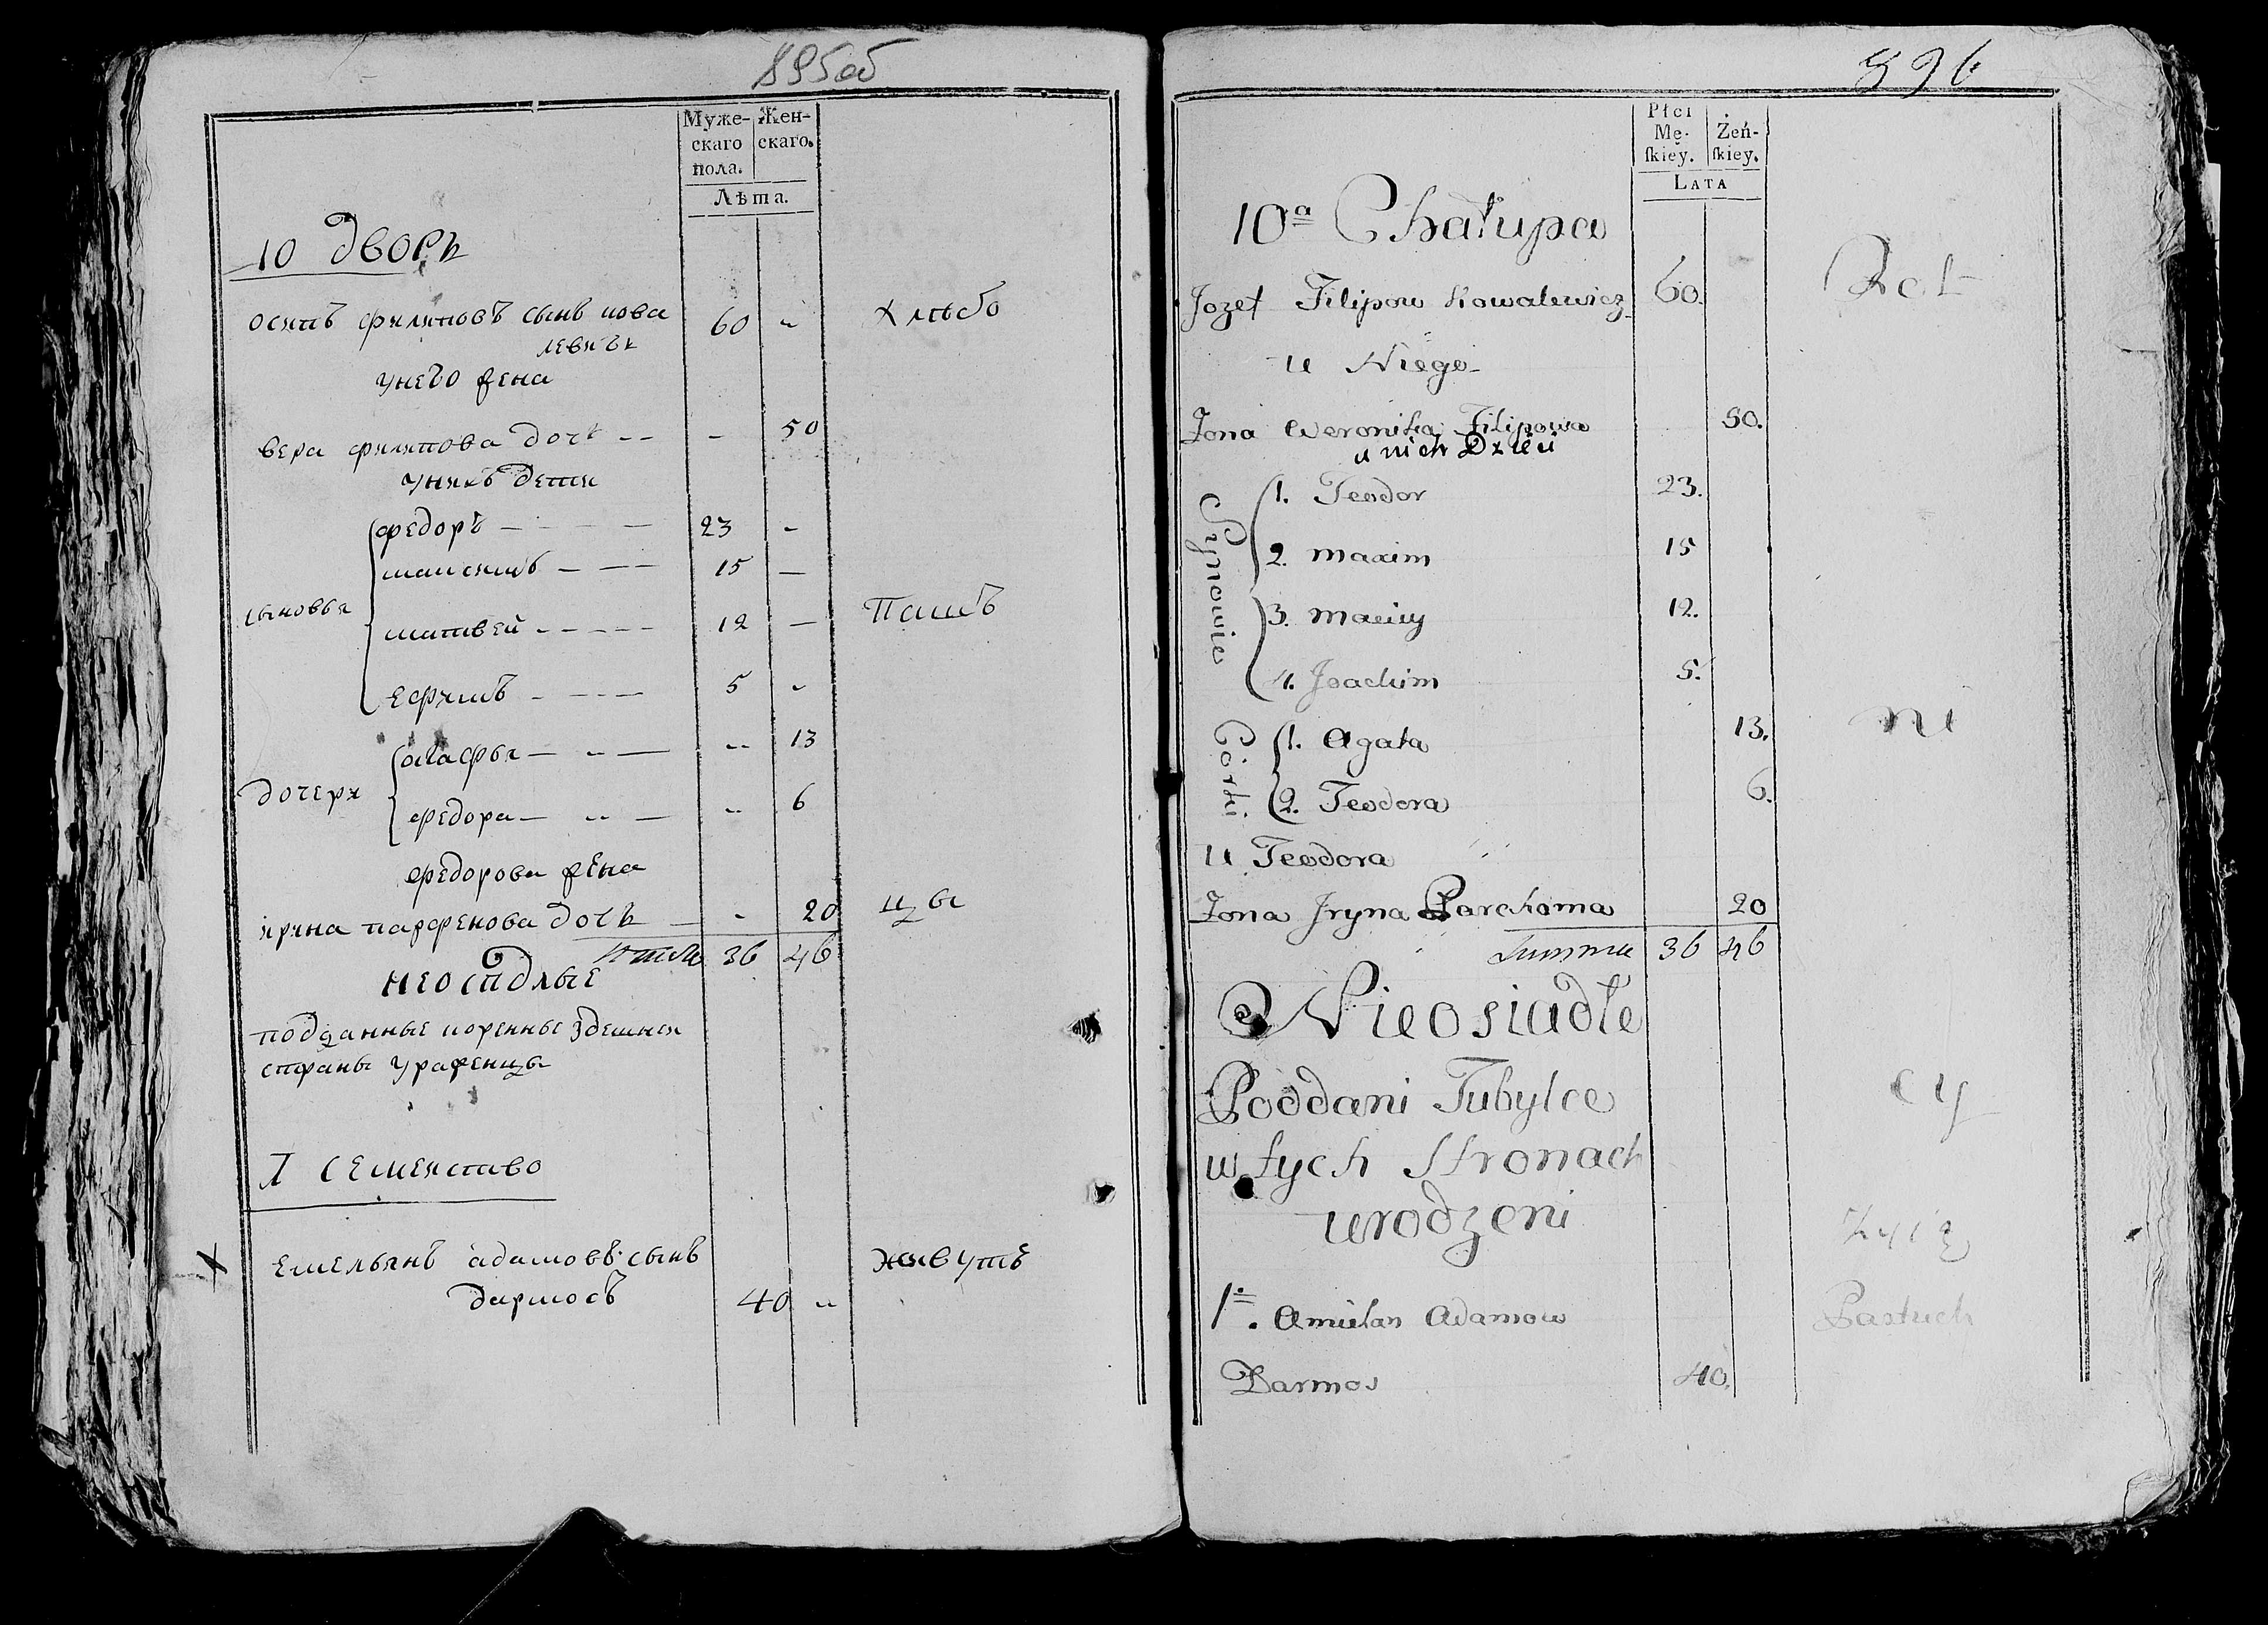 895об
Муже-
скаго
пола.
Жен-
скаго.
Лѣта.
10 дворъ
осипъ филиповъ сынъ кова 60 „ хлѣбо
левичъ
унего жена
вера филипова дочь -- - 50
унихъ дети
федоръ - - - - 23 -
максимъ - - - 15 -
сыновья
матвей - - - - - 12 - Паш
ефимъ - - - - 5 -
агафья - „ - „ 13
дочери
федора - „ - „ 6
федорова жена
ирина парфенова дочь - - 20 цы
итого 36 46
неосѣдлые
подданные коренные здешнея
страны уроженцы
1 семейство
х емельянъ адамовъ сынъ живутъ
дармосъ 40 „
896
Płci
Mę-
ſkiey.
Żeń-
ſkiey.
LATA
10ª Chałupa
Jozef Filipow Kowalewicz 60. Rol
u Niego
Zona Weronika Filipowa 50.
u nich Dzieci
Synowie
1. Teodor 23.
2. Maxim 15
3. Maciey 12.
4. Joachim 5.
Córki
1. Agata 13. ni
2. Teodora 6.
U Teodora
Zona Jryna Parchoma 20
Summa 36 46
Nieosiadłe
Poddani Tubylce cy
w tych Stronach
urodzeni żyią
1. Amielan Adamow Pastuch
Darmos 40.